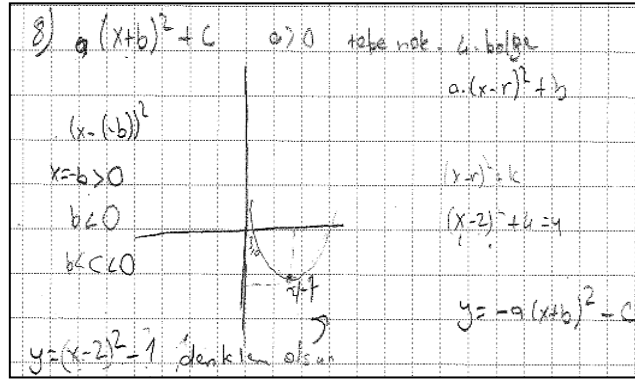 8) a(x+b)² + c   a>0   tepe nok. 4. bölge
a.(x-r)² + b
(x-(-b))²
x=-b>0
(x-r)² + k
b<0
(x-2)² + 4 = y
b<c<0
y = -a(x+b)² - c
y=(x-2)² - 1 denklem olsun